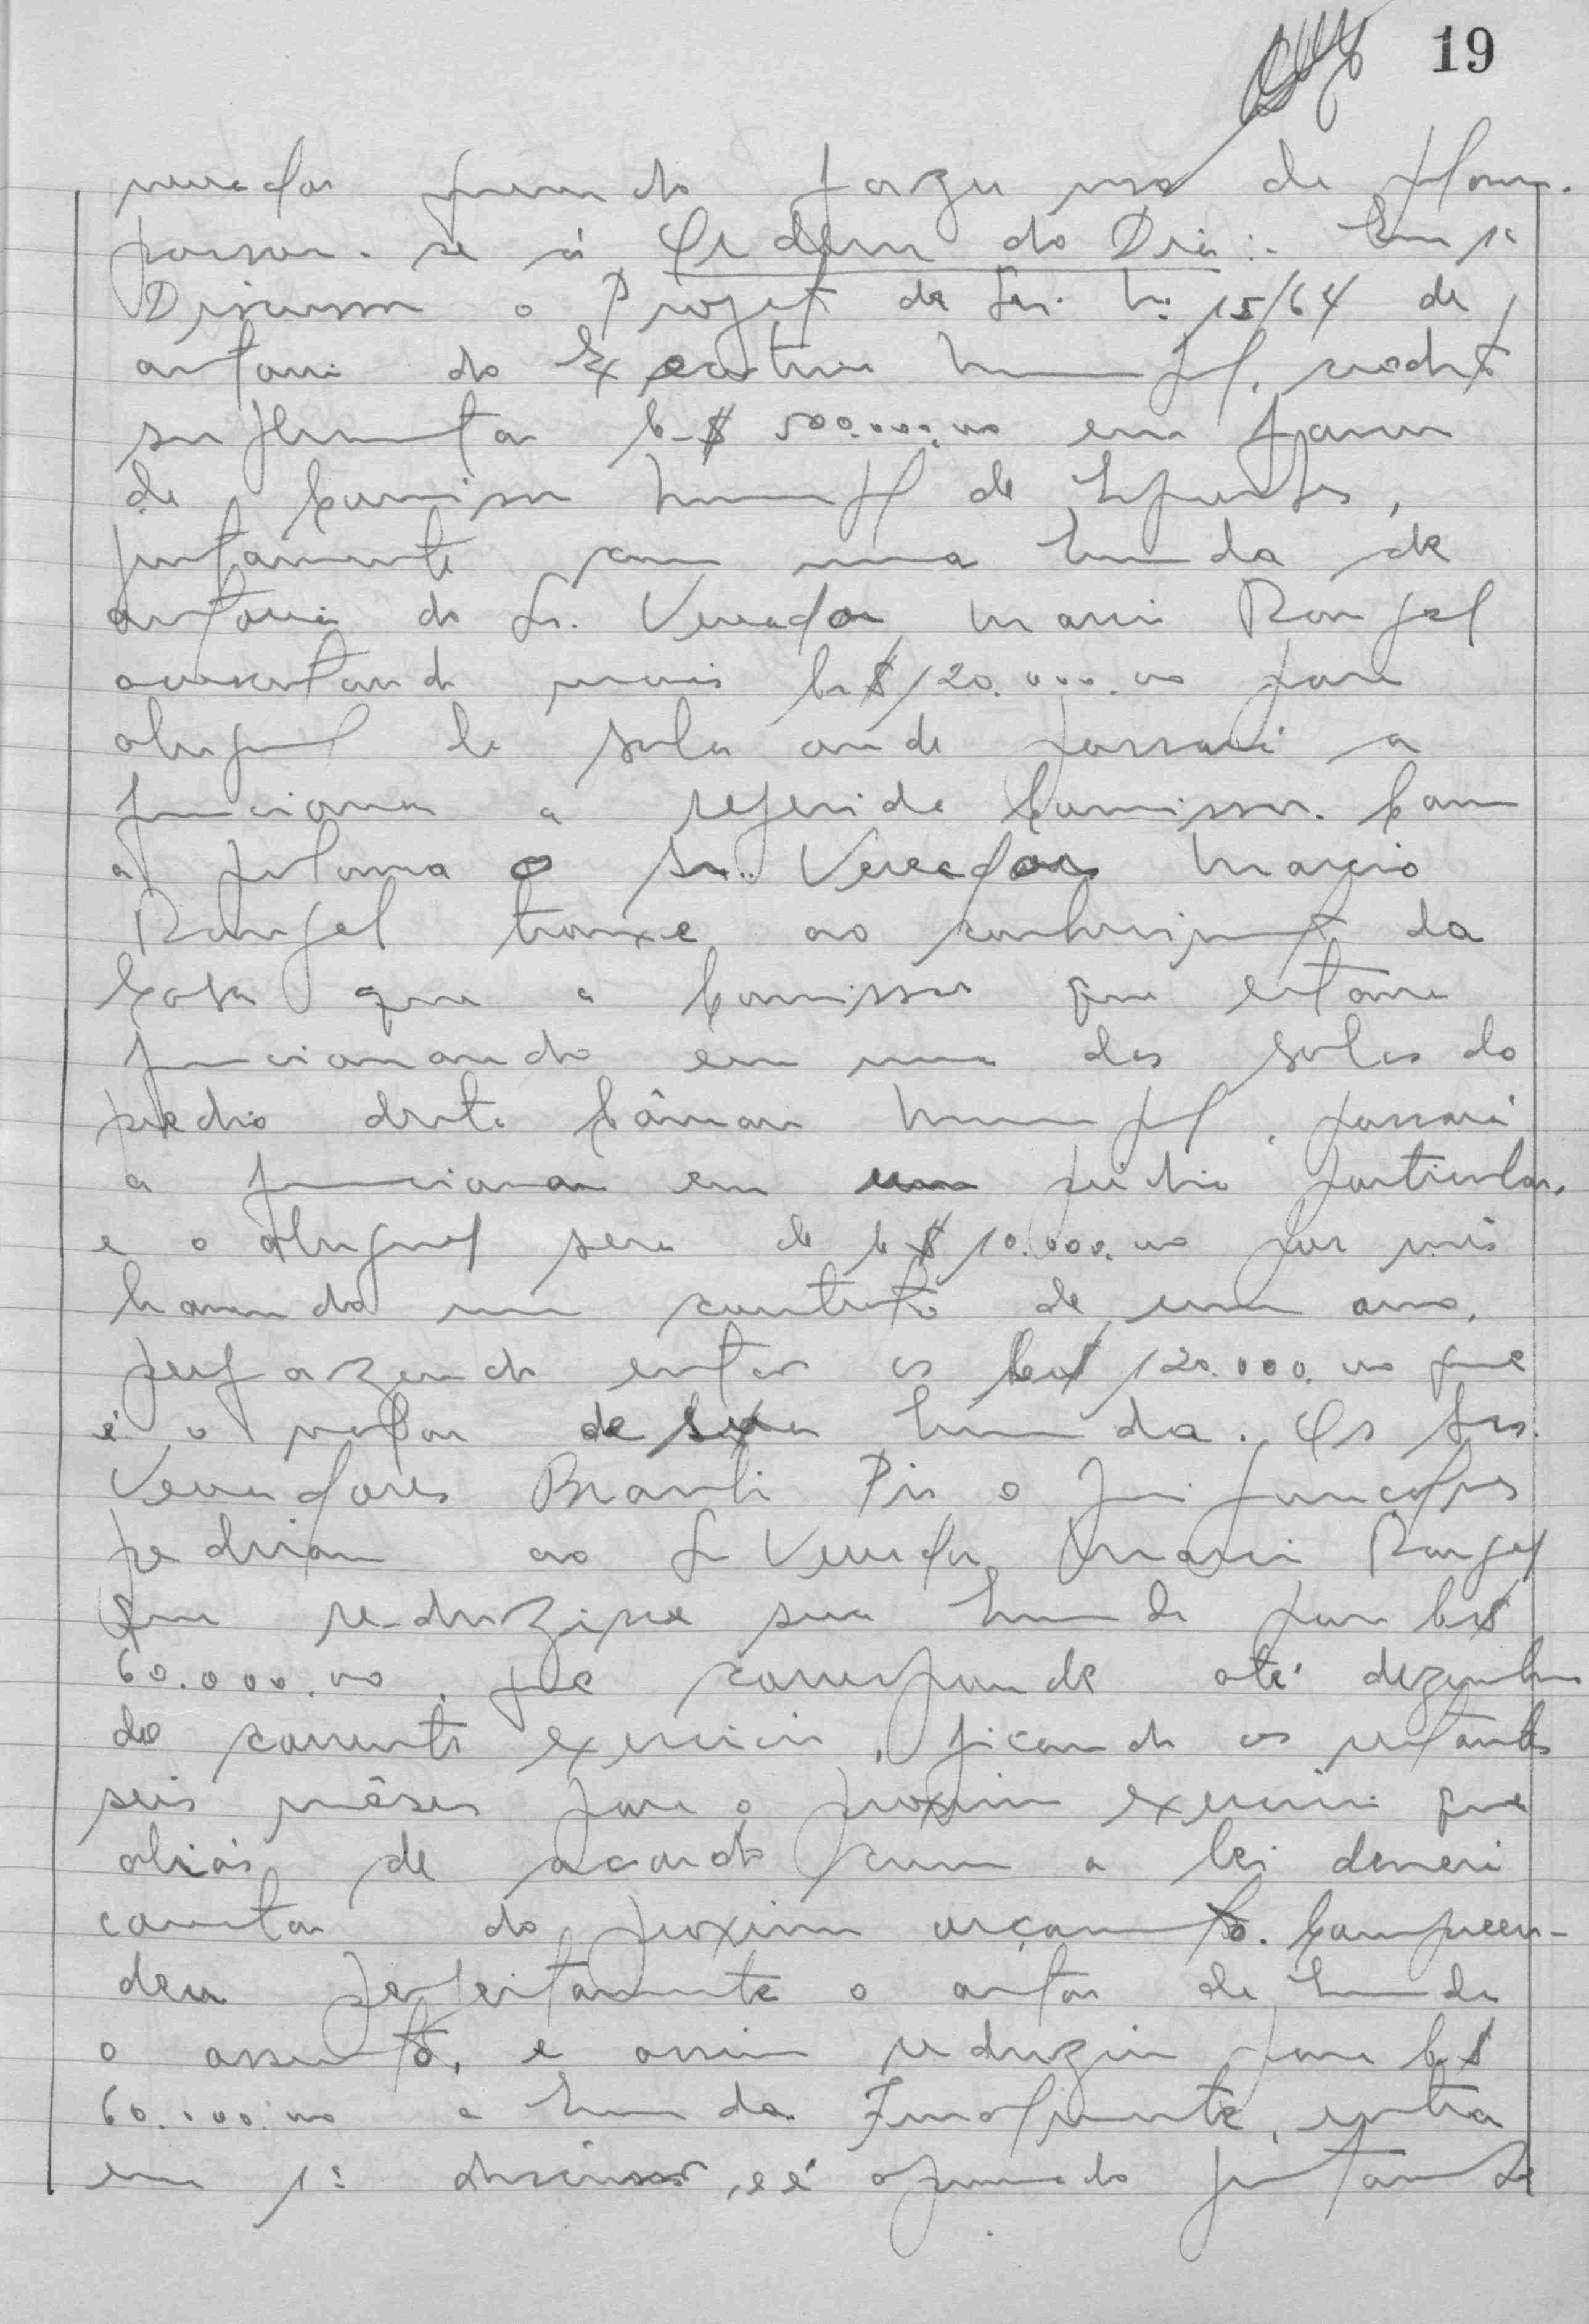 19
vereador querendo fazer uso da palavra
passou-se á Ordem do Dia:- Em 1ª
Discussão o Projeto de Lei nº 15/64 de
autoria do Executivo Municipal, credito
suplementar Cr$ 500.000,00 em favor
da Comissão Municipal de Esportes,
juntamente com uma Emenda de
autoria do Sr. Vereador Marcio Rangel
acrescentando mais Cr$ 120.000,00 para
aluguel de sala onde passará a
funcionar a referida Comissão. Com
a palavra o Sr. Vereador Marcio
Rangel trouxe ao conhecimento da
Casa que a Comissão que estava
funcionando em uma das salas do
predio desta Câmara Municipal, passará
a funcionar em um prédio particular,
e o aluguel sera de Cr$ 10.000,00 por mês
havendo um contrato de um ano,
perfazendo então os Cr$ 120.000,00 que
é o valor de sua Emenda. Os Srs.
Vereadores Pis e
pediram ao Sr Vereador Marcio Rangel
que reduzisse sua Emenda para Cr$
60.000,00, que corresponde até dezembro
do corrente exercicio, ficando os restantes
seis mêses para o proximo exercicio que
aliás de acordo com a lei deverá
constar do proximo orçamento. Compreen-
deu perfeitamente o autor da Emenda
o assunto, e assim reduziu para Cr$
60.000,00 a Emenda. Finalmente, entra
em 1ª discussão, e é aprovado juntamente